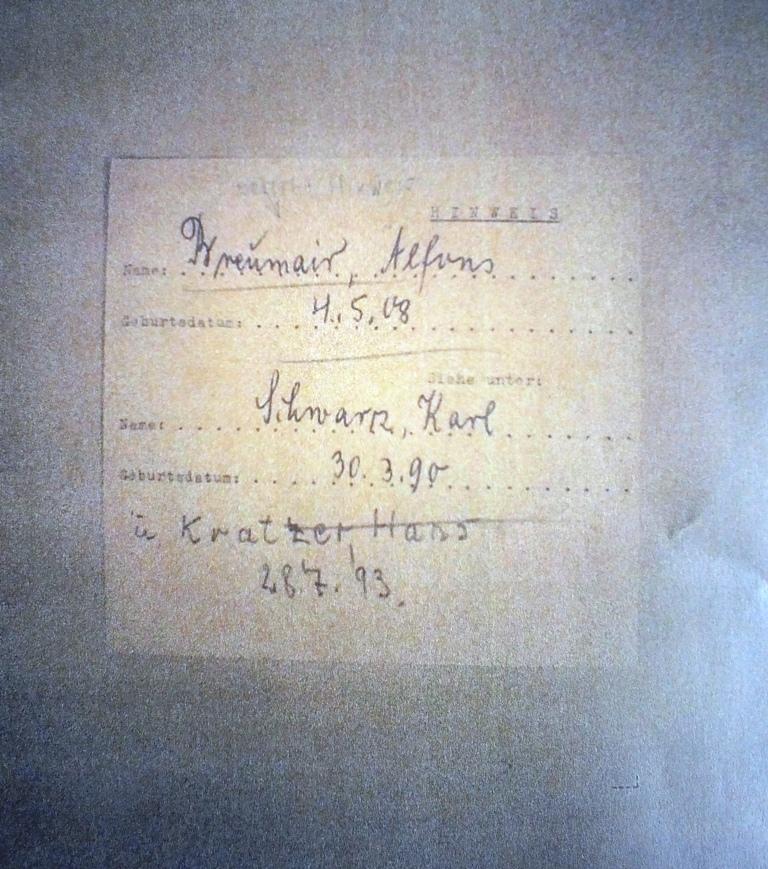 HINWEIS
Name: Breumair, Alfons
Geburtsdatum: 4.5.08
Siehe unter:
Name: Schwarz, Karl
Geburtsdatum: 30.3.90
u Kratzer, Hans
28.7.93.